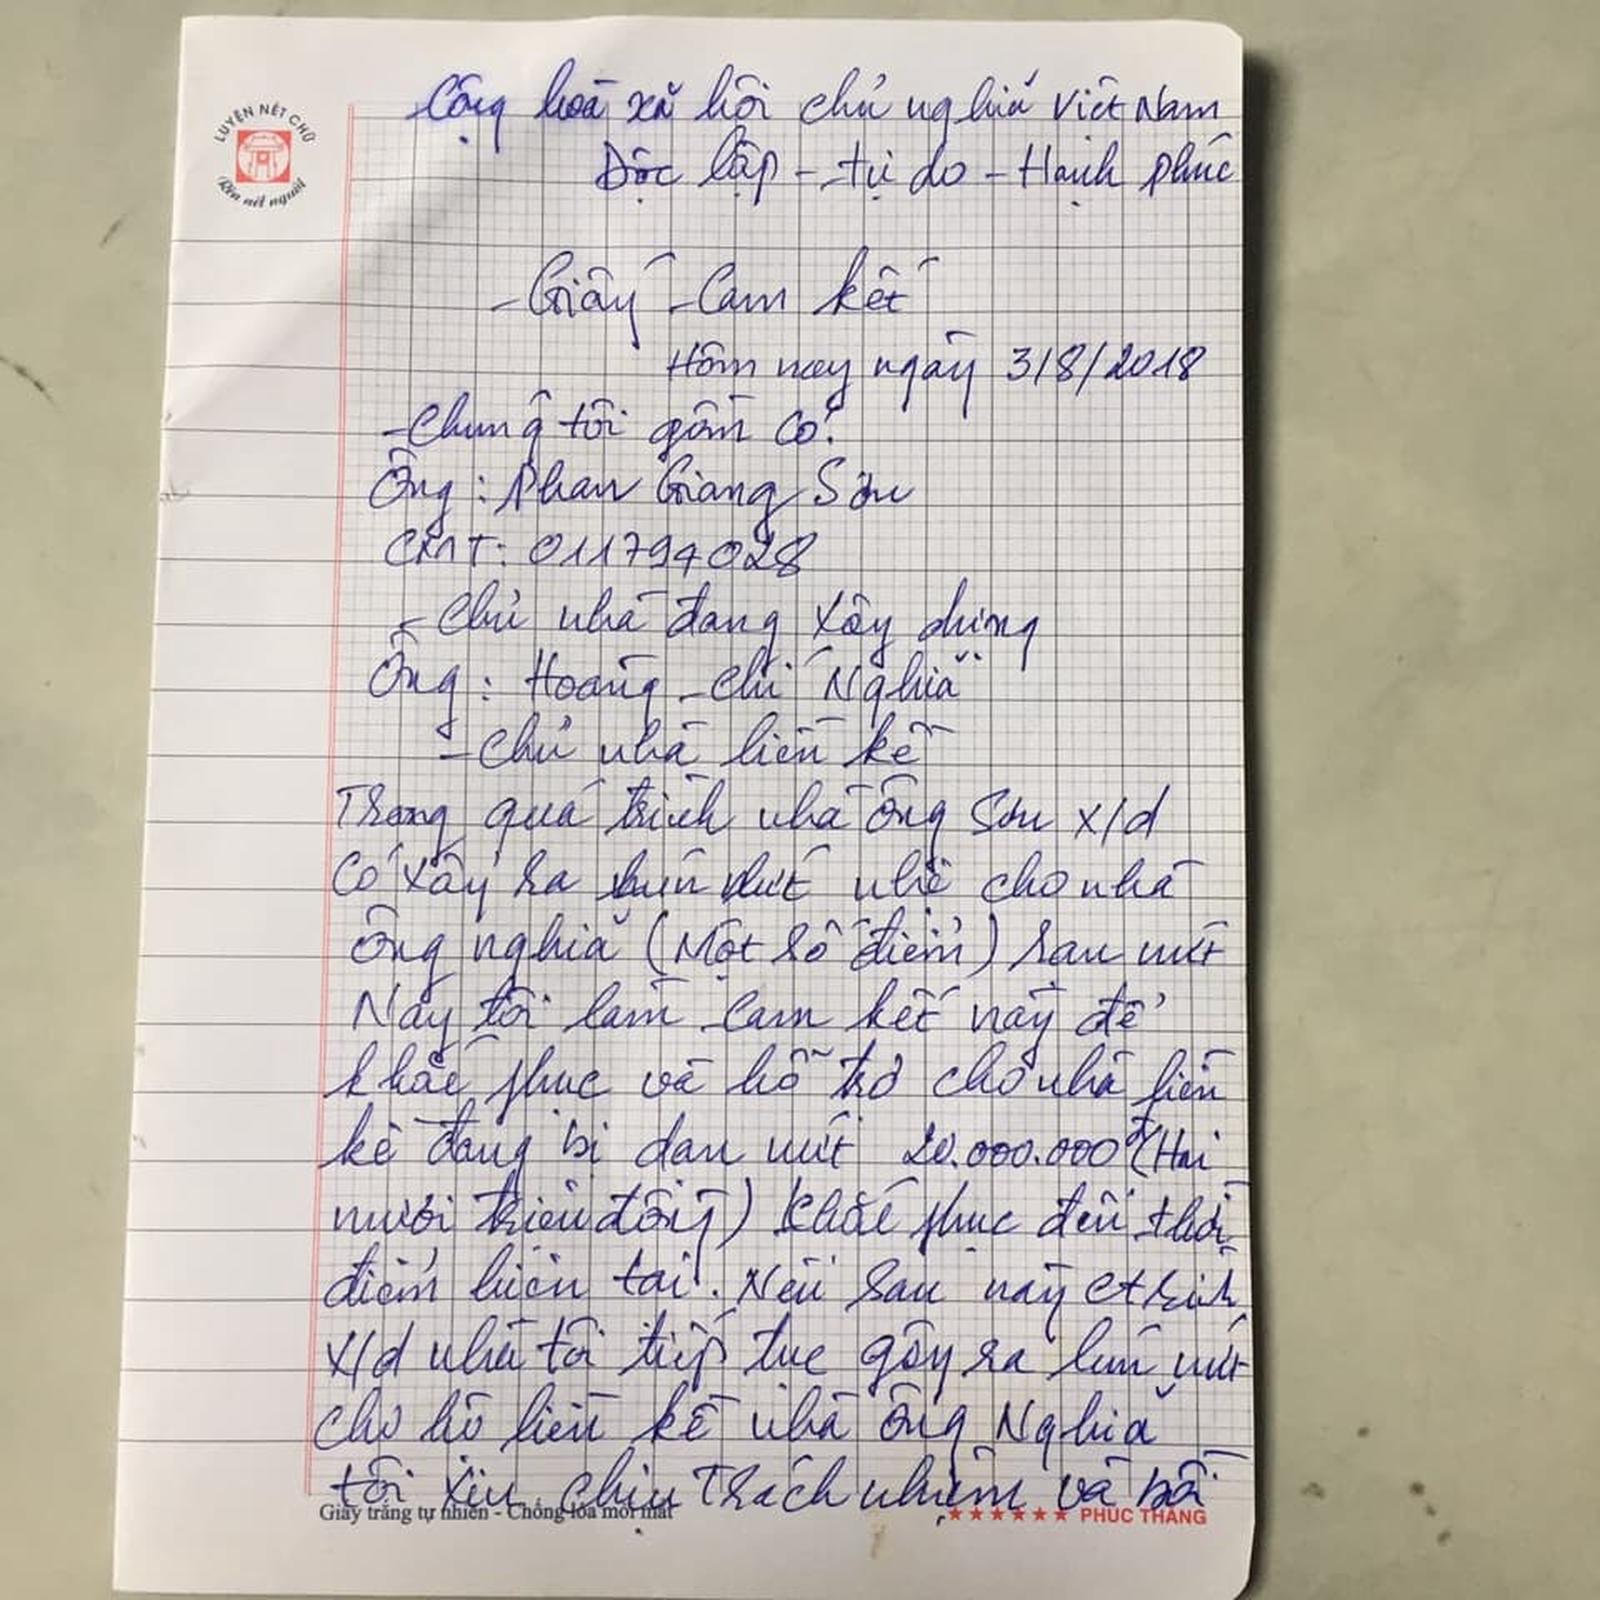 LUYỆN NÉT CHỮ
Rèn nét người
Cộng hoà xã hội chủ nghĩa Việt Nam
Độc lập - tự do - Hạnh phúc
- Giấy Cam kết
Hôm nay ngày 3/8/2018
- Chúng tôi gồm có:
Ông: Phan Giang Sơn
CMT: 011794028
- Chủ nhà đang xây dựng
Ông: Hoàng Chí Nghĩa
- Chủ nhà liền kề
Trong quá trình nhà ông Sơn x/d
Có xảy ra lún nứt nhẹ cho nhà
ông nghĩa (Một số điểm) rạn nứt
Nay tôi làm cam kết này để
khắc phục và hỗ trợ cho nhà liền
kề đang bị dạn nứt 20.000.000đ (Hai
mươi triệu đồng) khắc phục đến thời
điểm hiện tại. Nếu sau này ctrình
x/d nhà tôi tiếp tục gây ra lún nứt
cho hộ liền kề nhà ông Nghĩa
tôi xin chịu trách nhiệm và bồi
Giấy trắng tự nhiên - Chống lóa mỏi mắt
★★★★★★ PHÚC THẮNG